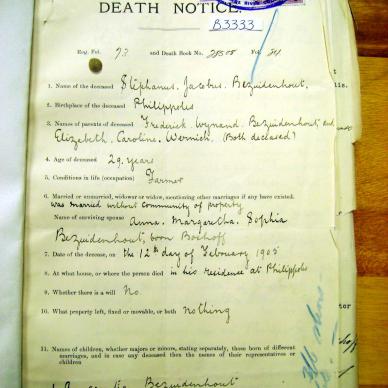 DEATH NOTICE.
B3333
Reg. Fol. 93 and Death Book No. Fol. 34
1. Name of the deceased Stephanus Jacobus Bezuidenhout
2. Birthplace of the deceased Philippolis
3. Names of parents of deceased Frederick Wynand Bezuidenhout and
Elizabeth Caroline Wernich (Both deceased)
4. Age of deceased 29 years
5. Conditions in life (occupation) Farmer
6. Married or unmarried, widower or widow, mentioning other marriages if any have existed.
was married without community of property
Name of surviving spouse Anna Margaretha Sophia
Bezuidenhout, born Boshoff
7. Date of the decease, on the 12th day of February 1905
8. At what house, or where the person died in his residence at Philippolis
9. Whether there is a will No
10. What property left, fixed or movable, or both nothing
11. Names of children, whether majors or minors, stating separately, those born of different
marriages, and in case any deceased then the names of their representatives or
children
Bezuidenhout